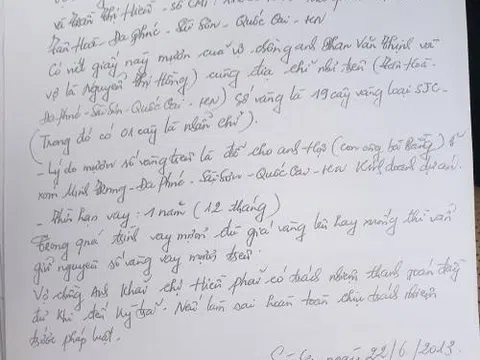 và Trần Thị Hiền - Số CMT:
Tân Hoà - Đa Phúc - Sài Sơn - Quốc Oai - HN
Có viết giấy này mượn của vợ chồng anh Phan Văn Thịnh và
vợ là Nguyễn Thị Hồng) cùng địa chỉ như trên (Tân Hoà -
Đa Phúc - Sài Sơn - Quốc Oai - HN) Số vàng là 19 cây vàng loại SJC -
(Trong đó có 01 cây là nhẫn chỉ).
- Lý do mượn số vàng trên là để cho anh Hợi (con ông bà Bằng) ở
xóm - Đa Phúc - Sài Sơn - Quốc Oai - HN Kinh doanh dự án.
- Thời hạn vay: 1 năm (12 tháng)
Trong quá trình vay mượn dù giá vàng lên hay xuống thì vẫn
giữ nguyên số vàng vay mượn trên.
Vợ chồng Anh Khải chị Hiền phải có trách nhiệm thanh toán đầy
đủ khi đến kỳ trả. Nếu làm sai hoàn toàn chịu trách nhiệm
trước pháp luật.
ngày 22/6/2013